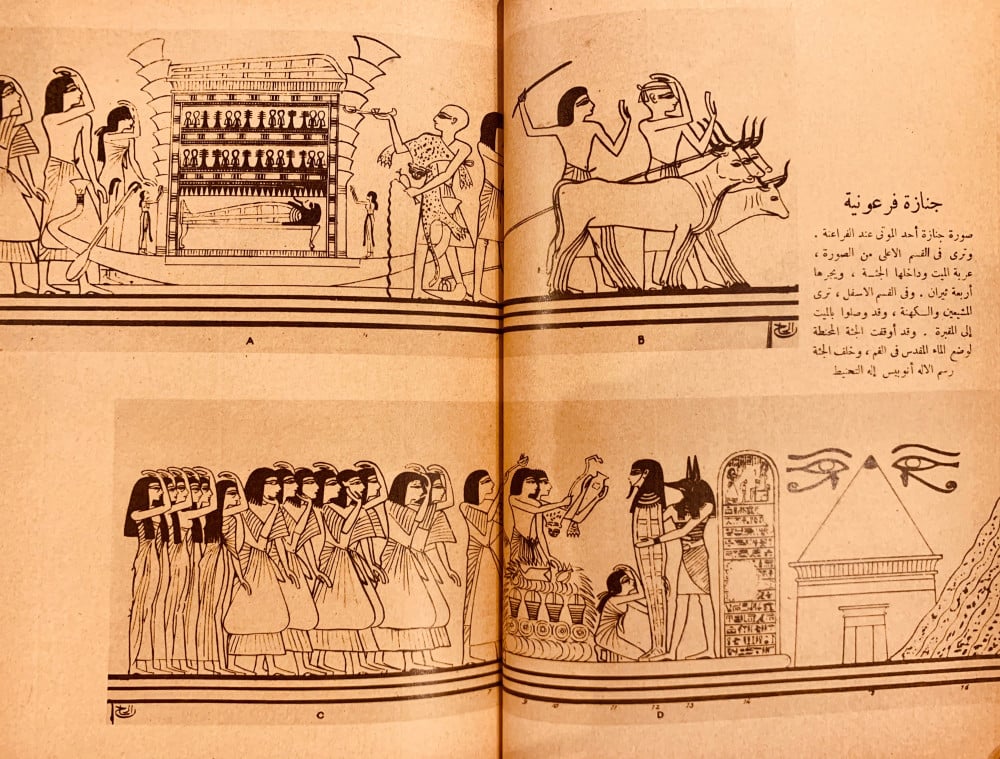 جنازة فرعونية
صورة جنازة أحد الموتى عند الفراعنة .
وترى فى القسم الاعلى من الصورة ،
عربة الميت وداخلها الجثـة ، ويجرها
أربعة ثيران . وفى القسم الاسفل ، ترى
المشيعين والـكهنة ، وقد وصلوا بالميت
إلى المقبرة . وقد أوقفت الجثة المحنطة
لوضع الماء المقدس فى الفم ، وخلف الجثة
رسم الاله أنوبيس إله التحنيط
A
B
C
D
9 10 11 12 13 14 16